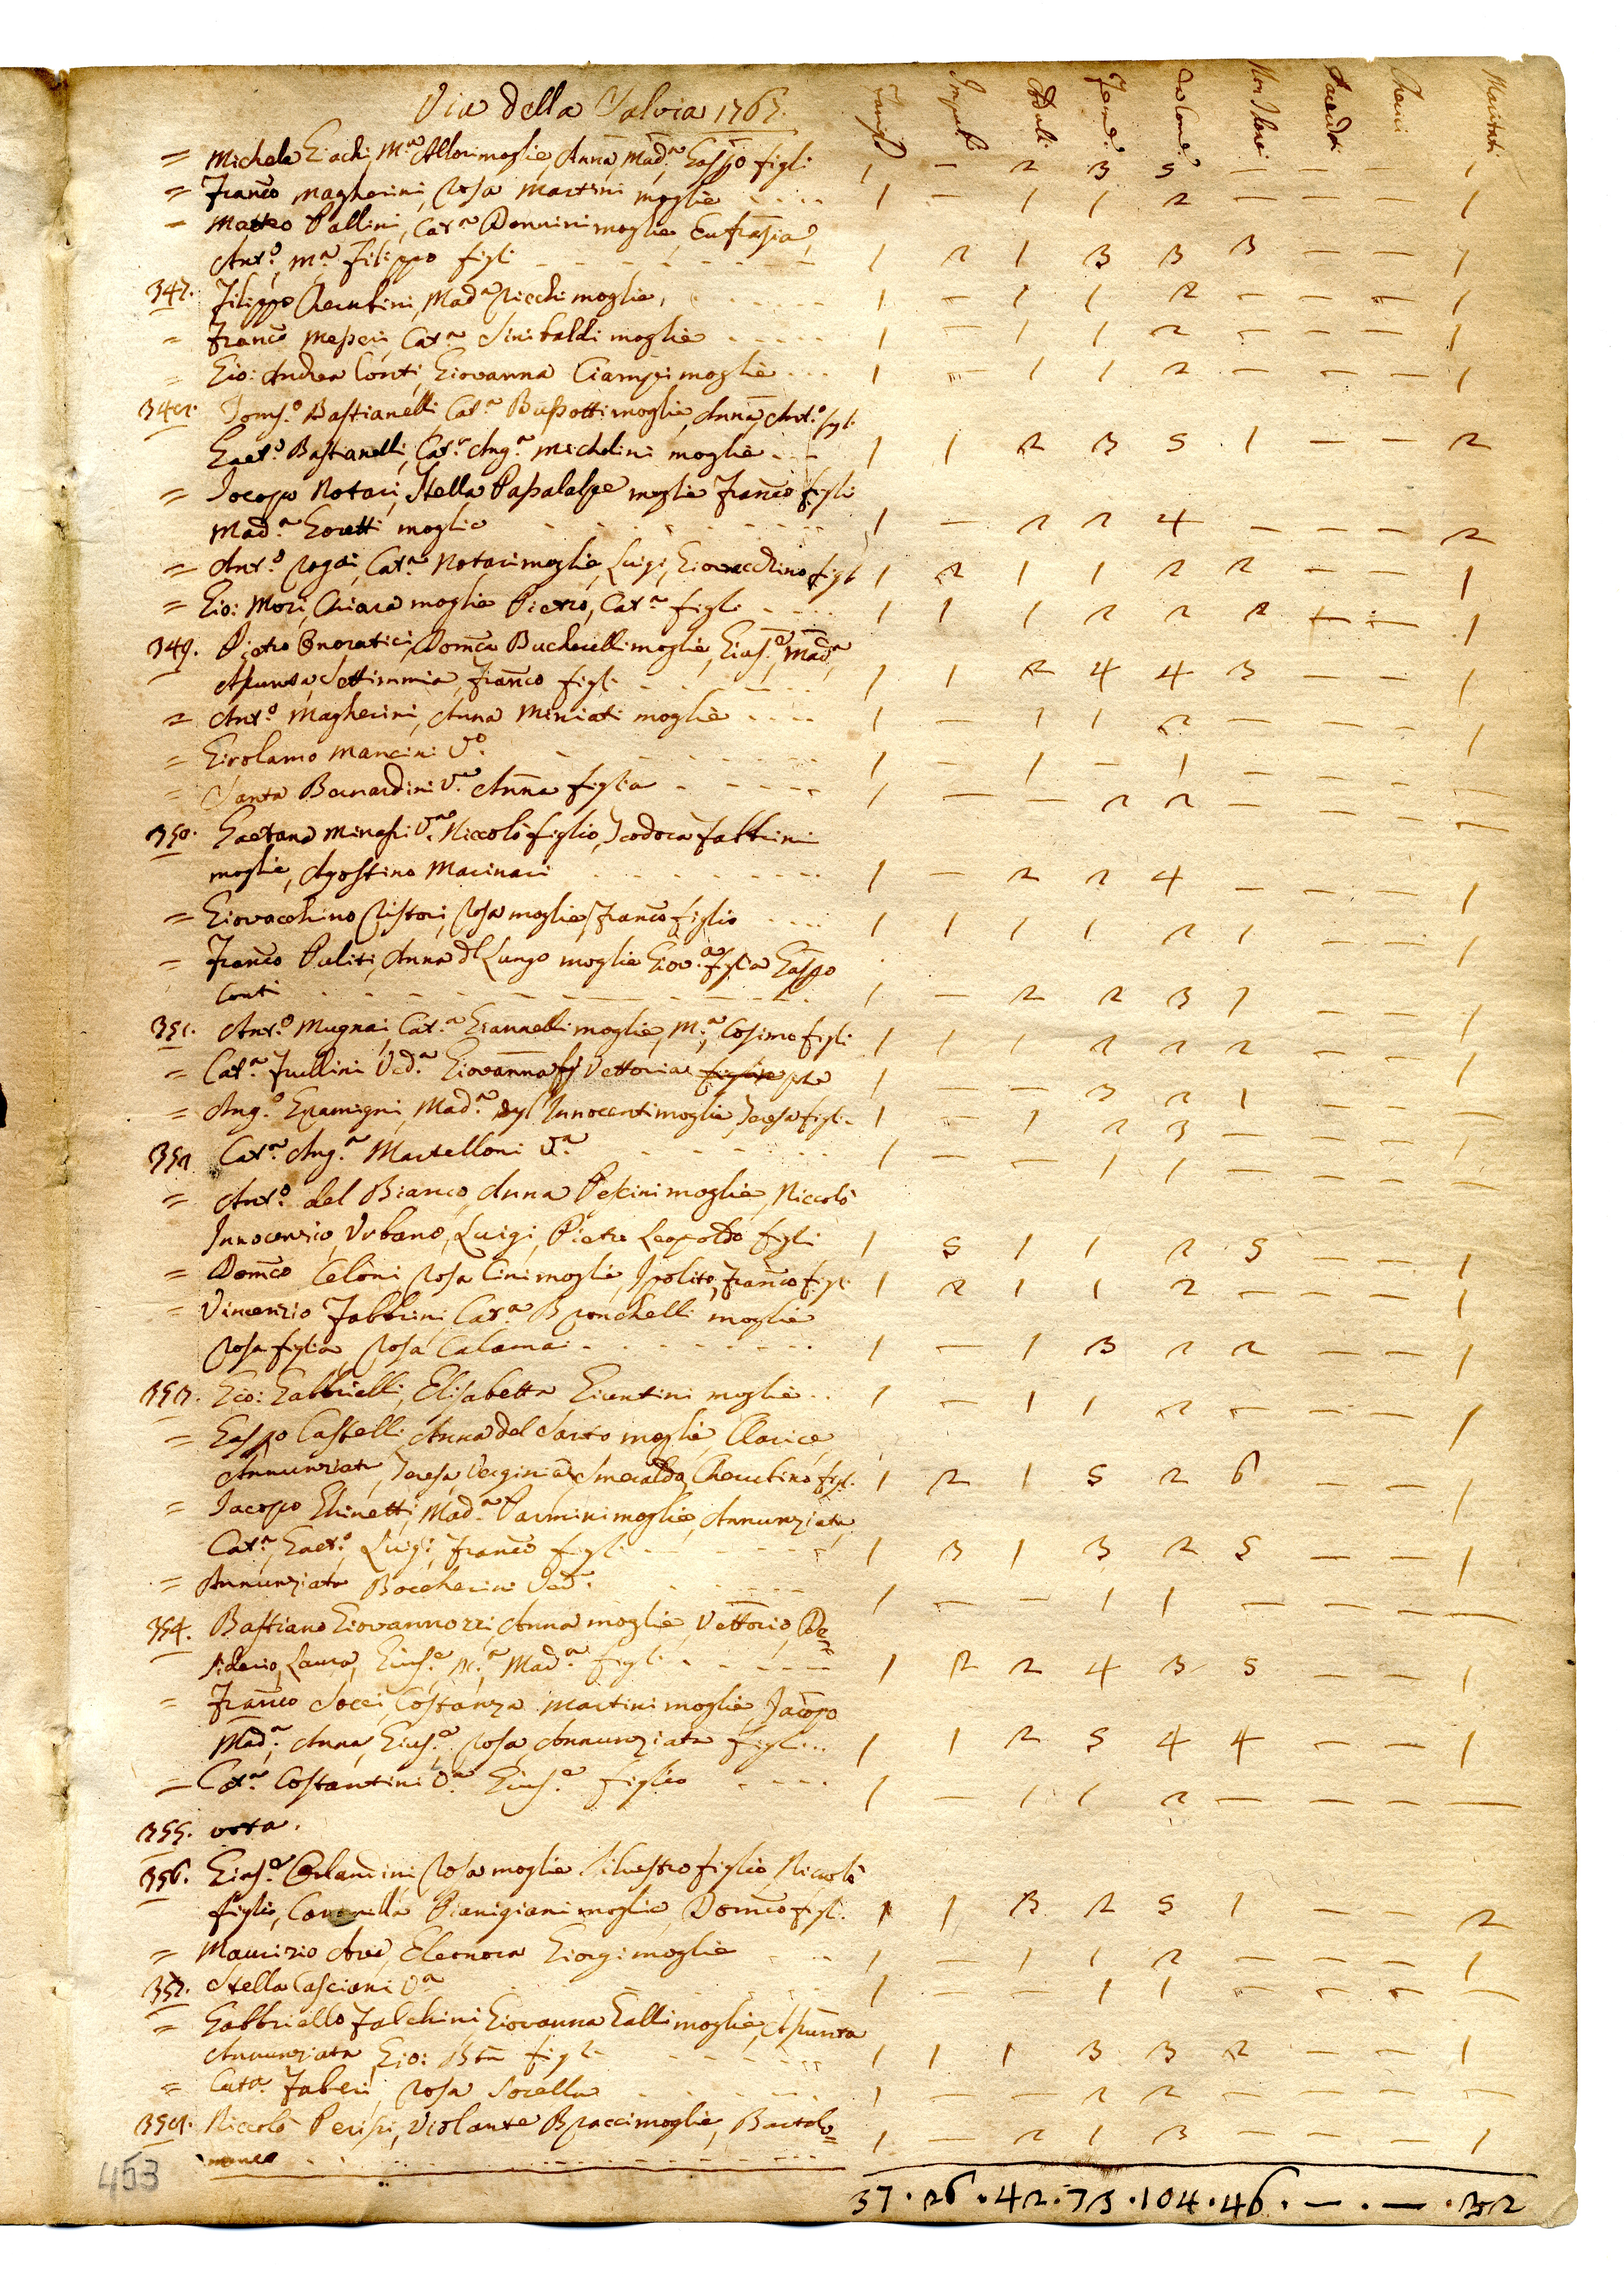 Via della Salvia 1767.
Famig. Impub. Adulti Fem. da Com. Non Com. Sacerdoti Cherici Maritati
= Michele Giachi, M.ª Allori moglie, Anna, Mad.ª Gaspo figli 1 — 2 3 5 — — — 1
= Franco Magherini, Rosa Martini moglie 1 — 1 1 2 — — — 1
= Matteo Pallini, Cat.ª Donnini moglie, Eufrasia,
Ant.º, M.ª Filippo figli 1 2 1 3 3 3 — — 1
347. Filippo Cherubini, Mad.ª Ricchi moglie, 1 — 1 1 2 — — — 1
= Franco Messeri, Cat.ª Sinibaldi moglie 1 — 1 1 2 — — — 1
= Gio: Andrea Conti, Giovanna Ciampi moglie 1 — 1 1 2 — — — 1
348. Toms.º Bastianelli, Cat.ª Bussotti moglie, Anna, Ant.º figli
Gaet.º Bastianelli, Cat.ª Ang.ª Michelini moglie 1 1 2 3 5 1 — — 2
= Jocopo Notari, Stella Passalalpe moglie Franco figli
Mad.ª Goretti moglie 1 — 2 2 4 — — — 2
= Ant.º Rogai, Cat.ª Notari moglie, Luigi, Giovacchino figli 1 2 1 1 2 2 — — 1
= Gio: Mori, Chiara moglie Pietro, Cat.ª figli 1 1 1 2 2 2 — — 1
349. Pietro Onoratici, Domca Bucherelli moglie, Gius.e, Mad.ª
Assunta, Settimmia, Franco figli 1 1 2 4 4 3 — — 1
= Ant.º Magherini, Anna Miniati moglie 1 — 1 1 2 — — — 1
= Girolamo Mancini V.º 1 — 1 — 1 — — — —
= Santa Bernardini V.ª Anna figlia 1 — — 2 2 — — — —
350. Gaetana Minassi V.ª Niccolò figlio, Teodora Fabbrini
moglie, Agostino Marinari 1 — 2 2 4 — — — 1
= Giovacchino Ristori, Rosa moglie, Franco figlio 1 1 1 1 2 1 — — 1
= Franco Puliti, Anna dl Lungo moglie Giov.ª figlia Gaspo
Conti 1 — 2 2 3 1 — — 1
351. Ant.º Mugnai, Cat.ª Giannelli moglie, M.ª, Cosimo figli 1 1 1 2 2 2 — — 1
= Cat.ª Frullini Ved.ª Giovanna Vettoria 1 — — 3 2 1 — — —
= Ang.º Gramigni, Mad.ª degl'Innocenti moglie, Teresa figli 1 — 1 2 3 — — — 1
352 Cat.ª Ang.ª Martelloni V.ª 1 — — 1 1 — — — —
= Ant.º del Bianco, Anna Pescini moglie, Niccolò
Innocenzio, Urbano, Luigi, Pietro Leopoldo figli 1 5 1 1 2 5 — — 1
= Domco Celoni Rosa Cini moglie, Ipolito, Franco figli 1 2 1 1 2 — — — 1
= Vincenzio Fabbrini, Cat.ª Bronchelli moglie
Rosa figlia, Rosa Calamai 1 — 1 3 2 2 — — 1
353. Gio: Gabbrielli, Elisabetta Giuntini moglie 1 — 1 1 2 — — — 1
= Gaspo Castelli, Anna del Sarto moglie, Clarice,
Annunziata, Teresa, Verginia, Smeralda, Cherubino figli 1 2 1 5 2 6 — — 1
= Jacopo Ghinetti, Mad.ª Parmini moglie, Annunziata,
Cat.ª, Gaet.º, Luigi, Franco figli 1 3 1 3 2 5 — — 1
= Annunziata Boccherini Ved.ª 1 — — 1 1 — — — —
354. Bastiano Giovannozzi, Anna moglie, Vettorio, De=
siderio, Laura, Gius.e, M.ª Mad.ª figli 1 2 2 4 3 5 — — 1
= Franco Socci, Costanza Martini moglie, Jacopo
Mad.ª, Anna, Gius.e, Rosa, Annunziata figli 1 1 2 5 4 4 — — 1
= Cat.ª Costantini V.ª Gius.e figlio 1 — 1 1 2 — — — —
355. vota.
356. Gius.e Orlandini, Rosa moglie Silvestro figlio, Niccolò
figlio, Pianigiani moglie, Domco figli 1 1 3 2 5 1 — — 2
= Maurizio Avi, Eleonora Giorgi moglie 1 — 1 1 2 — — — 1
357. Stella Casciani V.ª 1 — — 1 1 — — — —
= Gabbriello Falchini, Giovanna Galli moglie, Assunta
Annunziata, Gio: Bta figli 1 1 1 3 3 2 — — 1
= Cat.ª Faberi, Rosa Sorella 1 — — 2 2 — — — —
358. Niccolò Perissi, Violante Bracci moglie, Bartolo=
meo 1 — 2 1 3 — — — 1
37 . 26 . 42 . 73 . 104 . 46 . — . — . 32
453